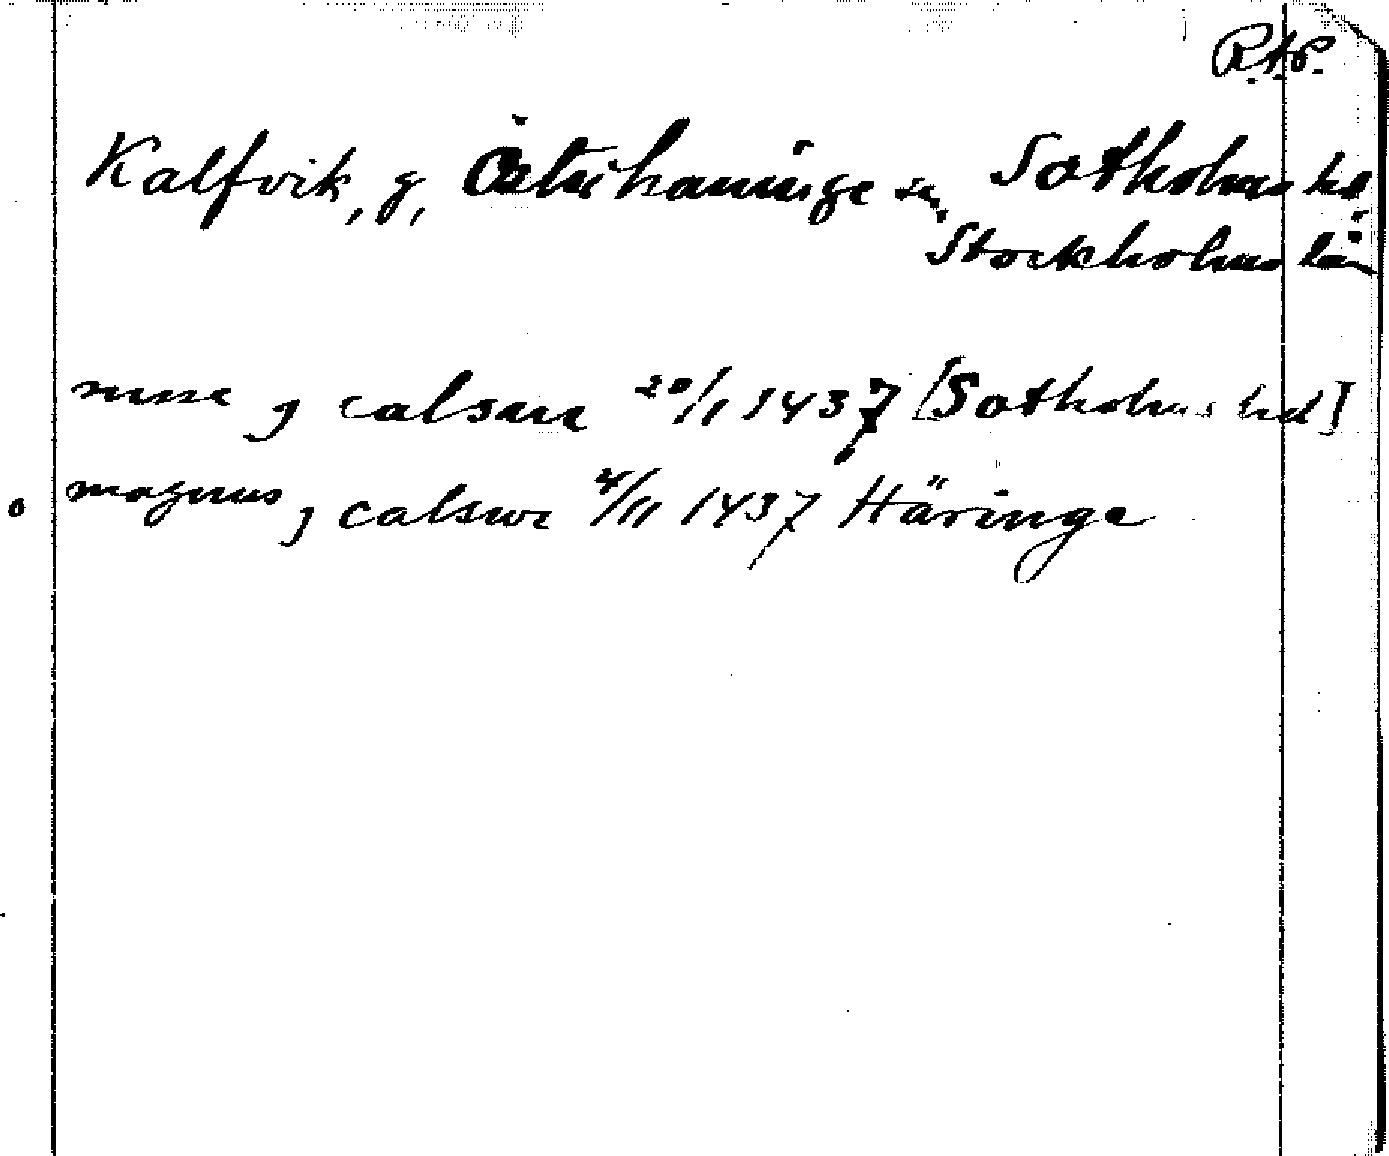 R.A.P.
Kalfvik, g, Österhaninge sn, Sotholms hd
Stockholms län
nisse j calswe 20/11 1437 [Sotholms hd]
magnus j calswe 4/11 1437 Häringe